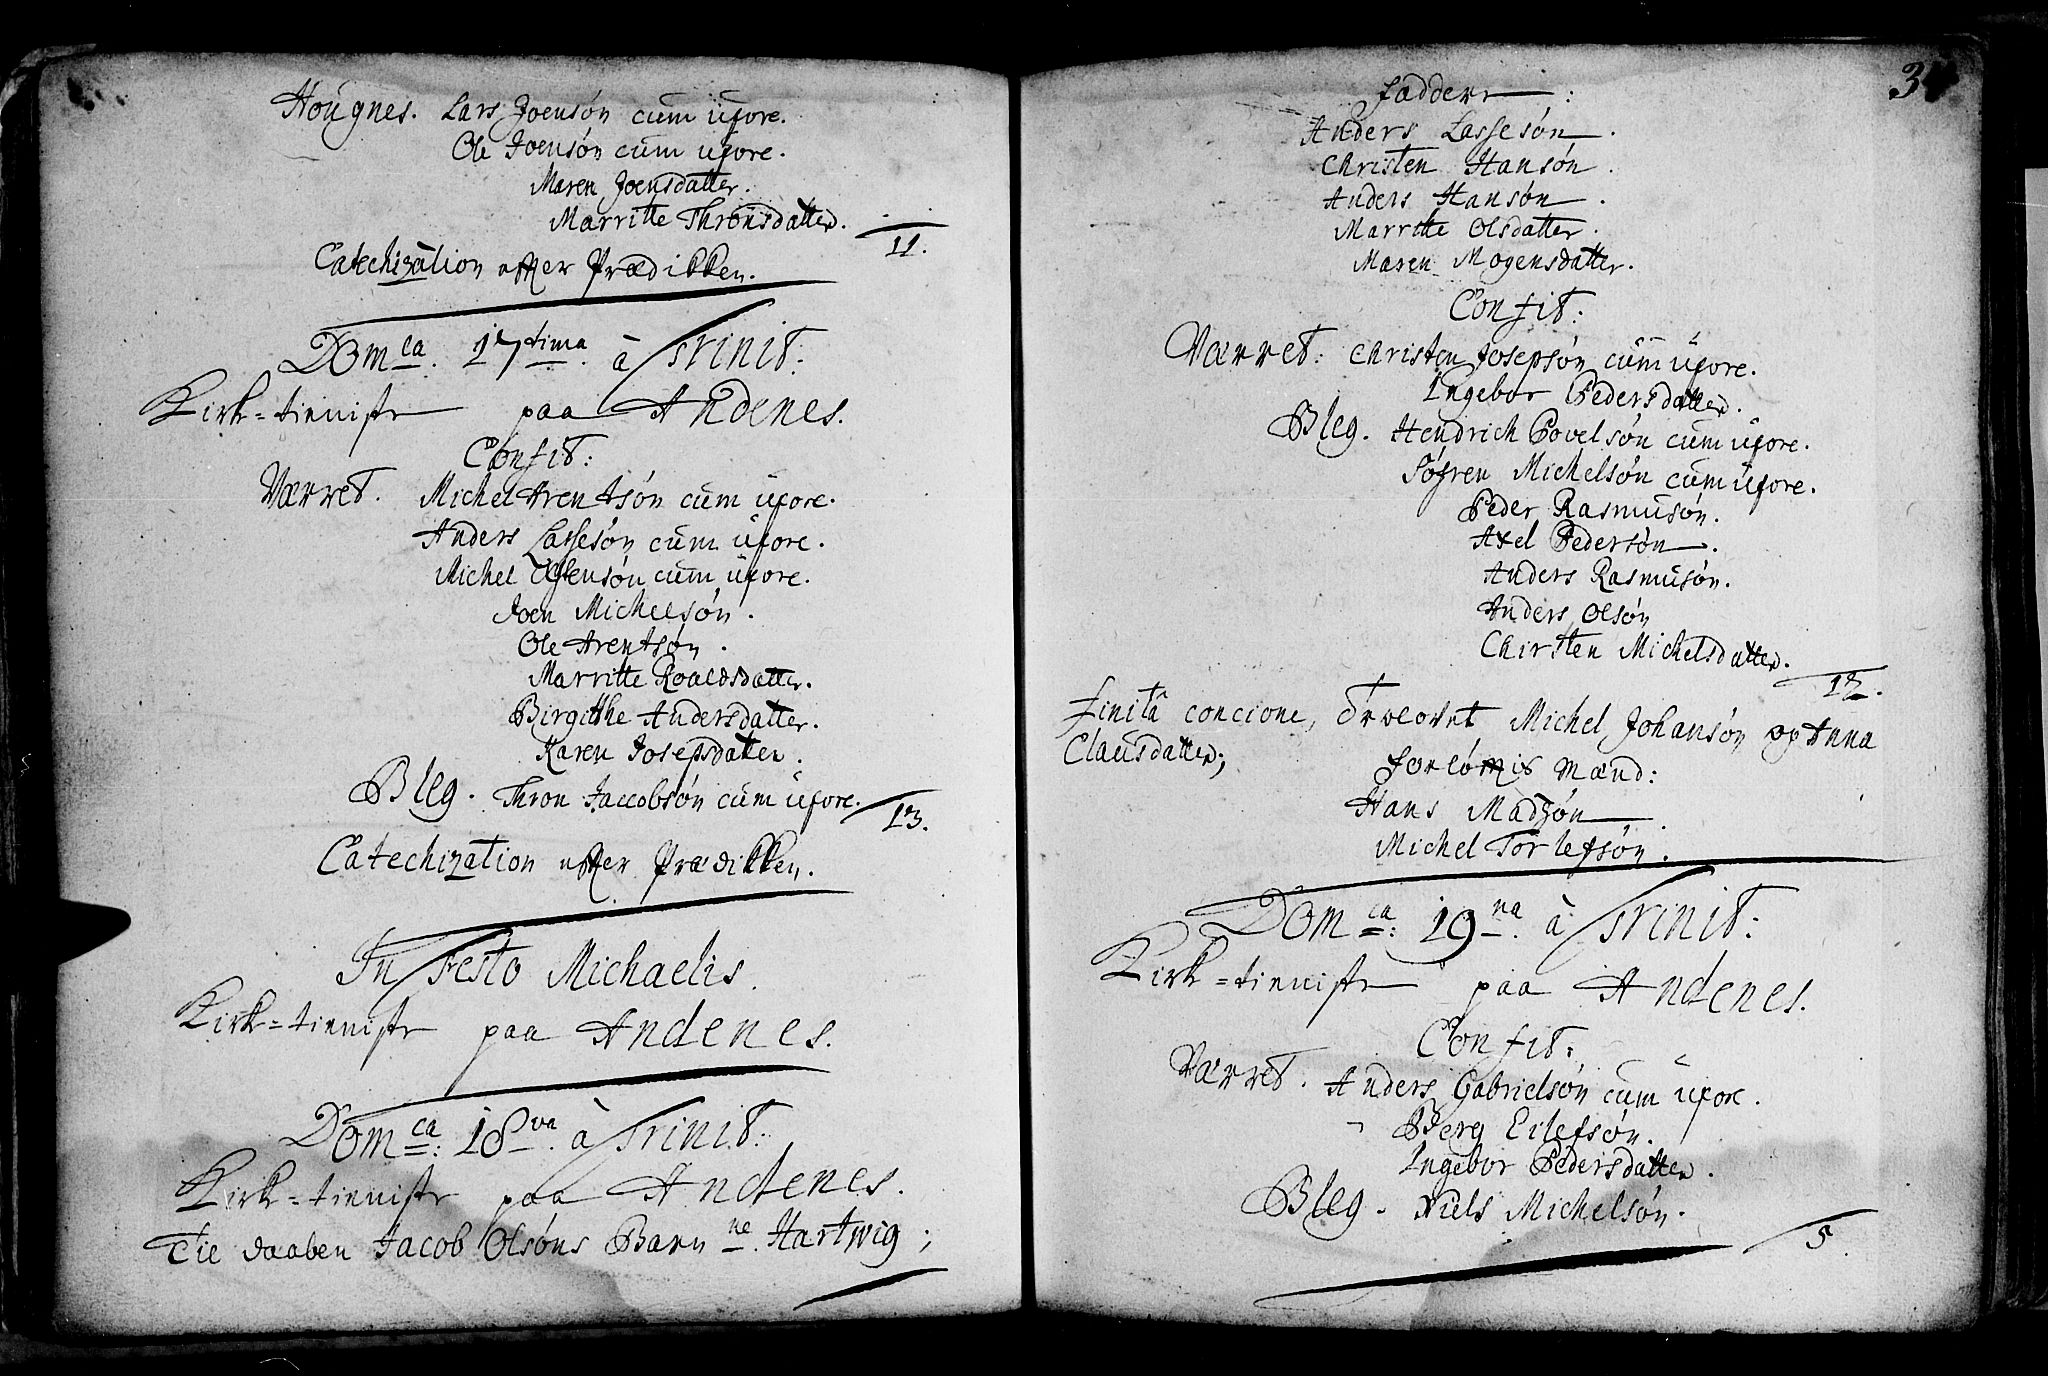 Hougnes. Lars Joensón cum uxore.
Ole Joensón cum uxore.
Maren Joensdatter.
Marritte Thronsdatter.
11.
Catechization efter Prædikken.
Dom ca. 17 tima. à Trinit:
Kirk=tienniste paa Andenes.
Confit:
Værret. Michel Arentsón cum uxore.
Anders Lassesón cum uxore.
Michel Olsensón cum uxore.
Joen Michelsón.
Ole Arentsón.
Marritte Roaldsdatter.
Birgitthe Andersdatter.
Karen Josepsdatter.
Bleg. Thron Jaccobsón cum uxore.
13.
Catechization efter Prædikken.
In Festo Michaelis.
Kirk=tienniste paa Andenes.
Dom ca: 18 va. à Trinit:
Kirk=tienniste paa Andenes.
Til daaben Jacob Olsóns Barn ne. Hartwig;
3
Faddere:
Anders Lassesón.
Christen Hansón.
Anders Hansón.
Marritte Olsdatter.
Maren Mogensdatter.
Confit:
Værret: Christen Josepsón cum uxore.
Ingebor Pedersdatter.
Bleg. Hendrich Povelsón cum uxore.
Sófren Michelsón cum uxore.
Peder Rasmusón.
Axel Pedersón.
Anders Rasmusón.
Anders Olsón
Chirsten Michelsdatter.
12.
Finitâ concione, Troelovet Michel Johansón og Anna
Clausdatter;
Forlófnis Mænd:
Hans Madzón
Michel Torlefsón.
Dom ca: 19 na. à Trinit:
Kirk=tienniste paa Andenes.
Confit:
Værret. Anders Gabrielsón cum uxore.
Berg Eilefsón.
Ingebor Pedersdatter.
Bleg. Niels Michelsón.
5.